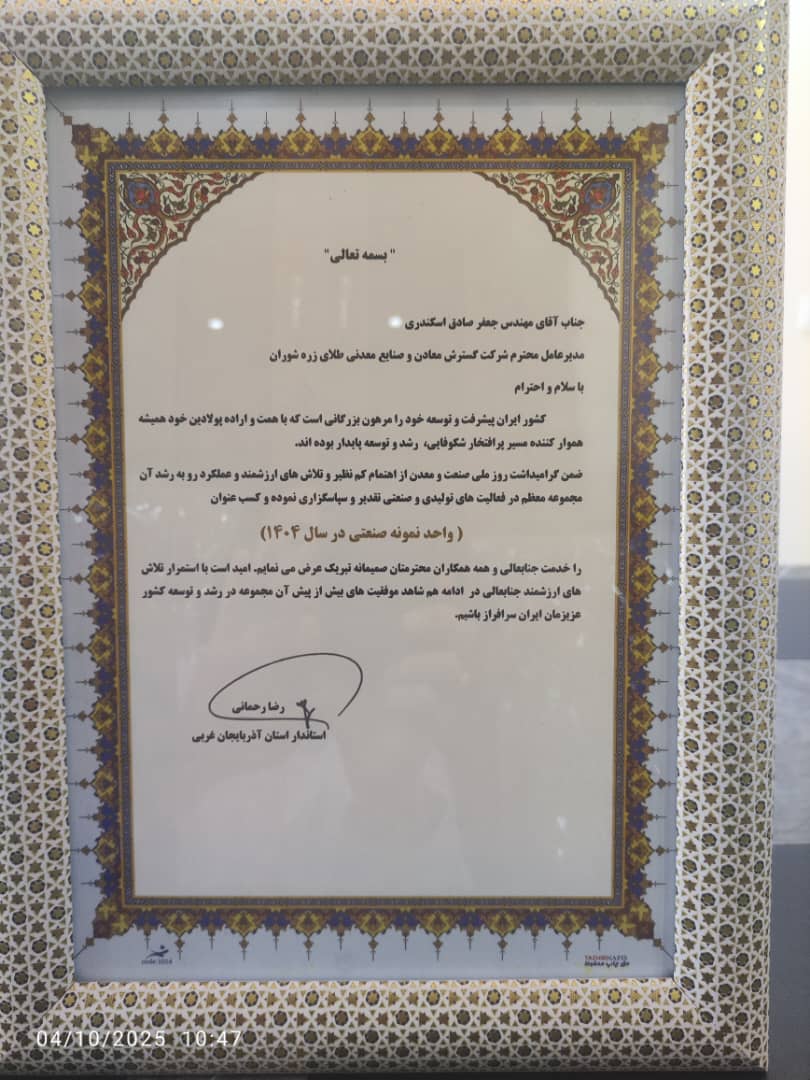 " بسمه تعالی"
جناب آقای مهندس جعفر صادق اسکندری
مدیرعامل محترم شرکت گسترش معادن و صنایع معدنی طلای زره شوران
با سلام و احترام
کشور ایران پیشرفت و توسعه خود را مرهون بزرگانی است که با همت و اراده پولادین خود همیشه
هموار کننده مسیر پرافتخار شکوفایی، رشد و توسعه پایدار بوده اند.
ضمن گرامیداشت روز ملی صنعت و معدن از اهتمام کم نظیر و تلاش های ارزشمند و عملکرد رو به رشد آن
مجموعه معظم در فعالیت های تولیدی و صنعتی تقدیر و سپاسگزاری نموده و کسب عنوان
( واحد نمونه صنعتی در سال ۱۴۰۴)
را خدمت جنابعالی و همه همکاران محترمتان صمیمانه تبریک عرض می نمایم. امید است با استمرار تلاش
های ارزشمند جنابعالی در ادامه هم شاهد موفقیت های بیش از پیش آن مجموعه در رشد و توسعه کشور
عزیزمان ایران سرافراز باشیم.
رضا رحمانی
استاندار استان آذربایجان غربی
حق چاپ محفوظ
04/10/2025 10:47